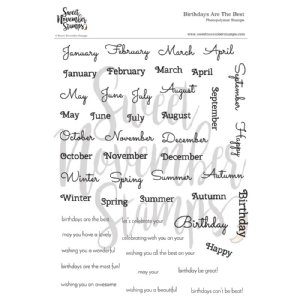 Sweet November Stamps
Birthdays Are The Best
Photopolymer Stamps
www.sweetnovemberstamps.com
January February March April
January February March April
May June July August
May June July August
September
September
October November December
October November December
Winter Spring Summer Autumn
Winter Spring Summer Autumn
Happy
Birthday
Birthday
Happy
birthdays are the best
let's celebrate your
may you have a lovely
celebrating with you on your
wishing you a wonderful
wishing you all the best on your
birthdays are the most fun!
may your
birthday be great!
wishing you an awesome
birthdays can't be beat!
Sweet November Stamps